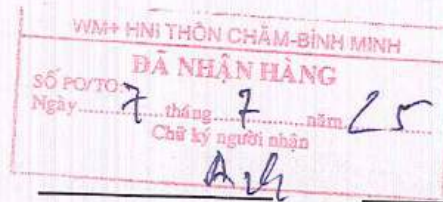 WM+ HNI THÔN CHẰM-BÌNH MINH
ĐÃ NHẬN HÀNG
SỐ PO/TO:
Ngày 7 tháng 7 năm 25
Chữ ký người nhận